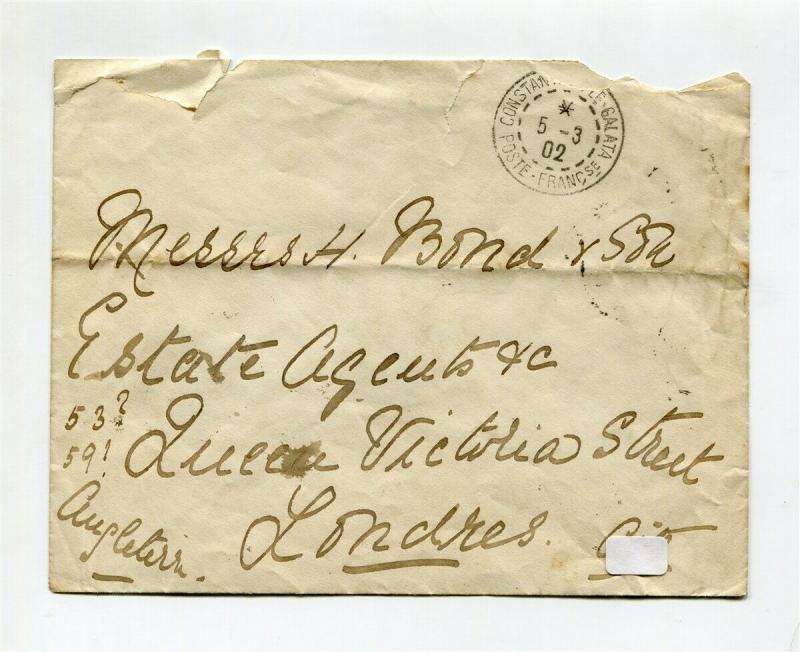 CONSTAN LE-GALATA
*
5 -3
02
POSTE-FRANÇSE
Messrs H. Bond & Son
Estate Agents &c
53?
59? Queen Victoria Street
Londres.
Angleterre.